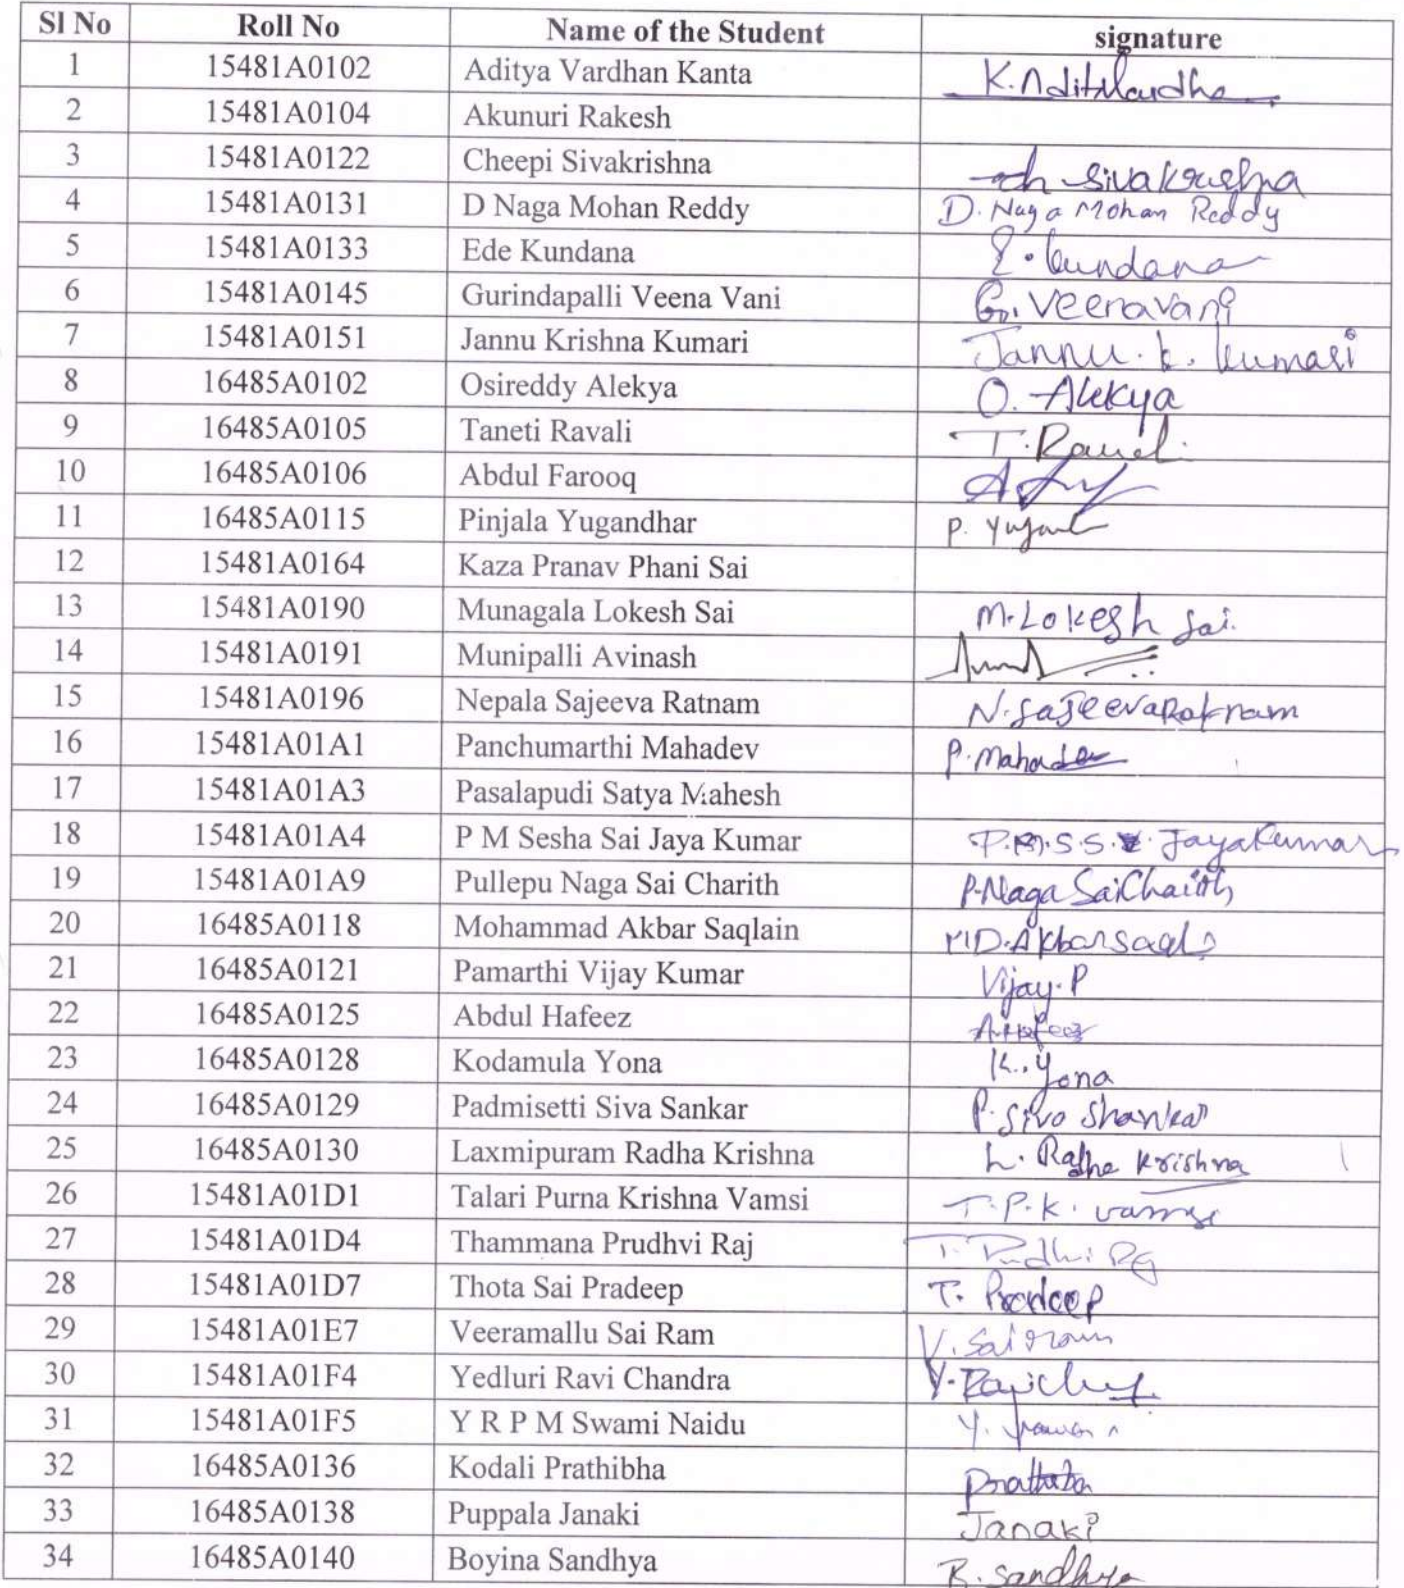 Sl No Roll No Name of the Student signature
1 15481A0102 Aditya Vardhan Kanta K. Aditya
2 15481A0104 Akunuri Rakesh
3 15481A0122 Cheepi Sivakrishna ch Sivakrishna
4 15481A0131 D Naga Mohan Reddy D. Naga Mohan Reddy
5 15481A0133 Ede Kundana E. kundana
6 15481A0145 Gurindapalli Veena Vani G. Veenavani
7 15481A0151 Jannu Krishna Kumari Jannu. k. kumari
8 16485A0102 Osireddy Alekya O. Alekya
9 16485A0105 Taneti Ravali T. Ravali
10 16485A0106 Abdul Farooq
11 16485A0115 Pinjala Yugandhar P.
12 15481A0164 Kaza Pranav Phani Sai
13 15481A0190 Munagala Lokesh Sai M. Lokesh Sai.
14 15481A0191 Munipalli Avinash
15 15481A0196 Nepala Sajeeva Ratnam N. SajeevaRatnam
16 15481A01A1 Panchumarthi Mahadev P. Mahadev
17 15481A01A3 Pasalapudi Satya Mahesh
18 15481A01A4 P M Sesha Sai Jaya Kumar P.M.S.S. JayaKumar
19 15481A01A9 Pullepu Naga Sai Charith P. Naga Sai Charith
20 16485A0118 Mohammad Akbar Saqlain MD. Akbar
21 16485A0121 Pamarthi Vijay Kumar Vijay. P
22 16485A0125 Abdul Hafeez A. Hafeez
23 16485A0128 Kodamula Yona K. Yona
24 16485A0129 Padmisetti Siva Sankar P. Siva Shankar
25 16485A0130 Laxmipuram Radha Krishna L. Radha Krishna
26 15481A01D1 Talari Purna Krishna Vamsi T. P. K. vamsi
27 15481A01D4 Thammana Prudhvi Raj T.
28 15481A01D7 Thota Sai Pradeep T. Pradeep
29 15481A01E7 Veeramallu Sai Ram V. Sai ram
30 15481A01F4 Yedluri Ravi Chandra Y.
31 15481A01F5 Y R P M Swami Naidu Y.
32 16485A0136 Kodali Prathibha Prathibha
33 16485A0138 Puppala Janaki Janaki
34 16485A0140 Boyina Sandhya B. Sandhya